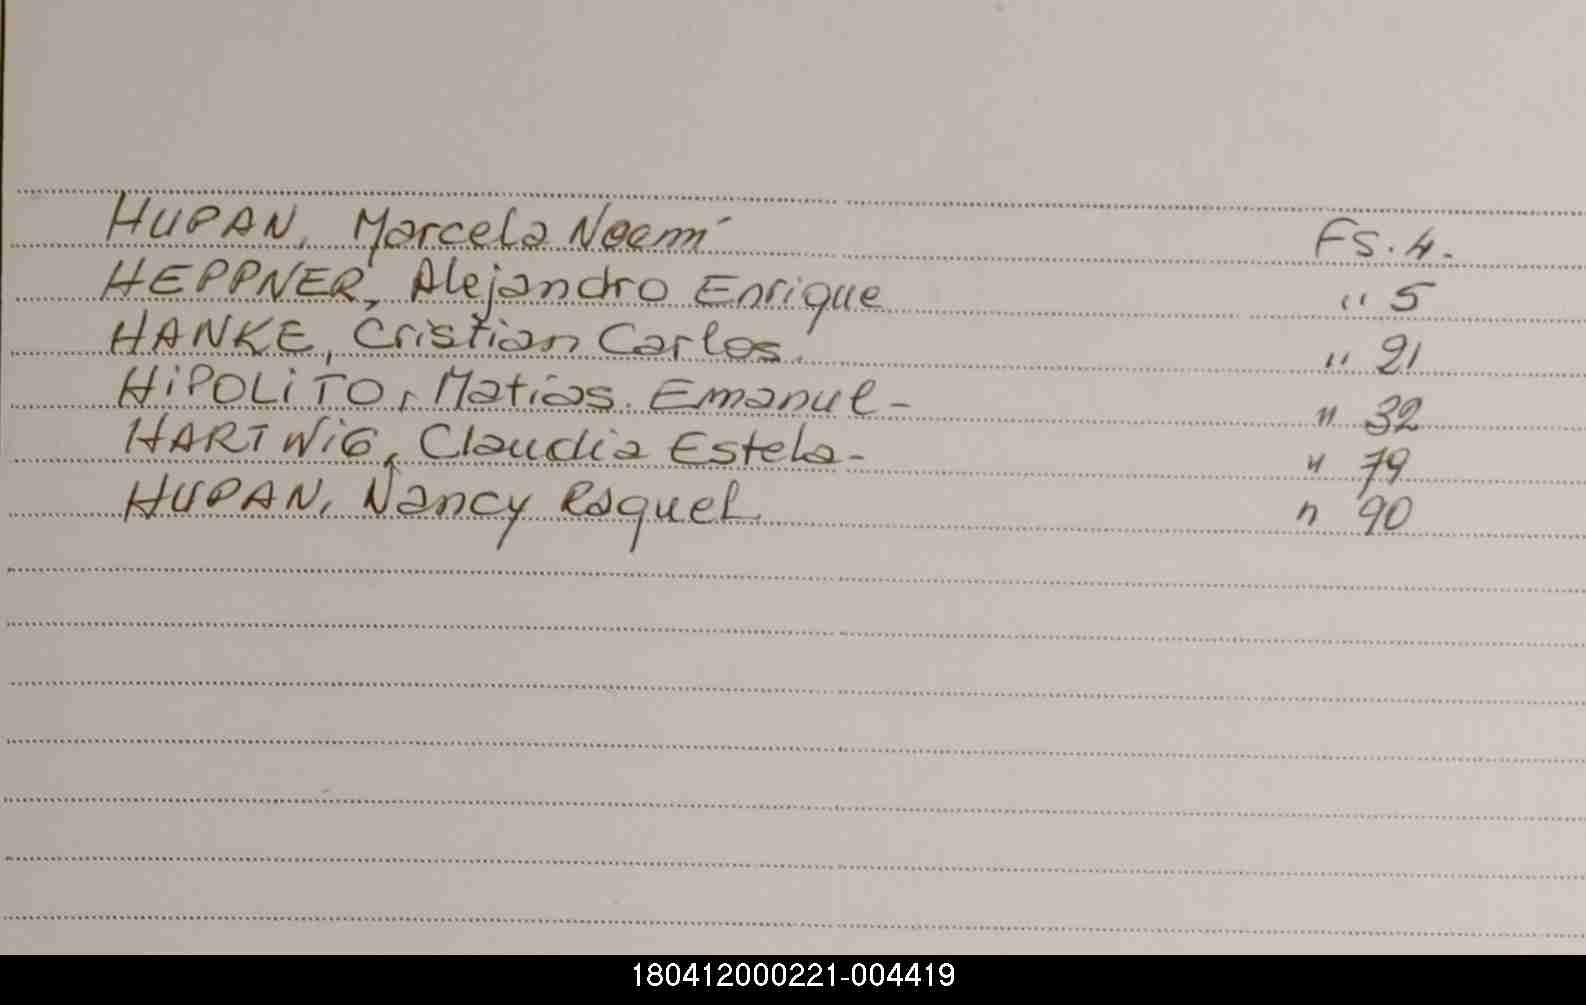 HUPAN, Marcela Noemí Fs. 4.
HEPPNER, Alejandro Enrique " 5
HANKE, Cristian Carlos. " 21
HiPOLiTO, Matías Emanuel - " 32
HARTWiG, Claudia Estela - " 79
HUPAN, Nancy Raquel " 90
180412000221-004419